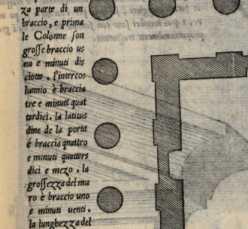 za parte di un
braccio, e prima
le Colonne son
grosse braccio u
no e minuti di
ciotto, l'interco
lunnio è braccia
tre e minuti quat
tordici. la latitu
dine de la porta
è braccia quattro
e minuti quattor
dici e mezo, la
grossezza del mu
ro è braccio uno
e minuti uenti.
la lunghezza del